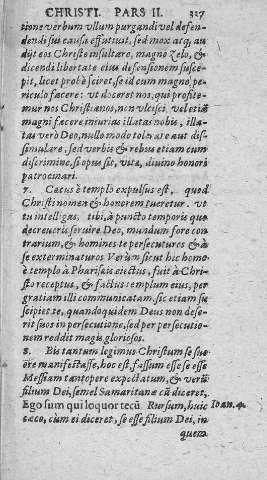 CHRISTI. PARS II. 327
tione verbum vllum purgandi vel defen-
dendi sui causa effutiuit, sed mox atq, au
dijt eos Christo insultare, magno zelo, &
dicendi libertate eius defensionem susce-
pit, licet probè sciret, se id cum magno pe-
riculo facere: vt doceret nos, qui profite-
mur nos Christianos, non vlcisci, vel etiā
magni facere iniurias illatas nobis, illa-
tas verò Deo, nullo modo tolerare aut dis-
simulare, sed verbis & rebus etiam cum
discrimine, si opus sit, vitæ, diuino honori
patrocinari.
7. Cæcus è templo expulsus est, quod
Christi nomen & honorem tueretur. vt
tu intelligas, tibi, à puncto temporis quo
decreueris seruire Deo, mundum fore con
trarium, & homines te persecuturos & à
se exterminaturos Verùm sicut hic homo
è templo à Pharisæis eiectus, fuit à Chri-
sto receptus, & factus templum eius, per
gratiam illi communicatam, sic etiam su
scipiet te, quandoquidem Deus non dese-
rit suos in persecutione, sed per persecutio-
nem reddit magis gloriosos.
8. Bis tantum legimus Christum se sue
rè manifestasse, hoc est, fassum esse se esse
Messiam tantopere expectatum, & verū
filium Dei, semel Samaritanæ cū diceret,
Ego sum qui loquor tecū. Rursum, huic Ioan. 4.
cæco, cùm ei diceret, se esse filium Dei, in
quem